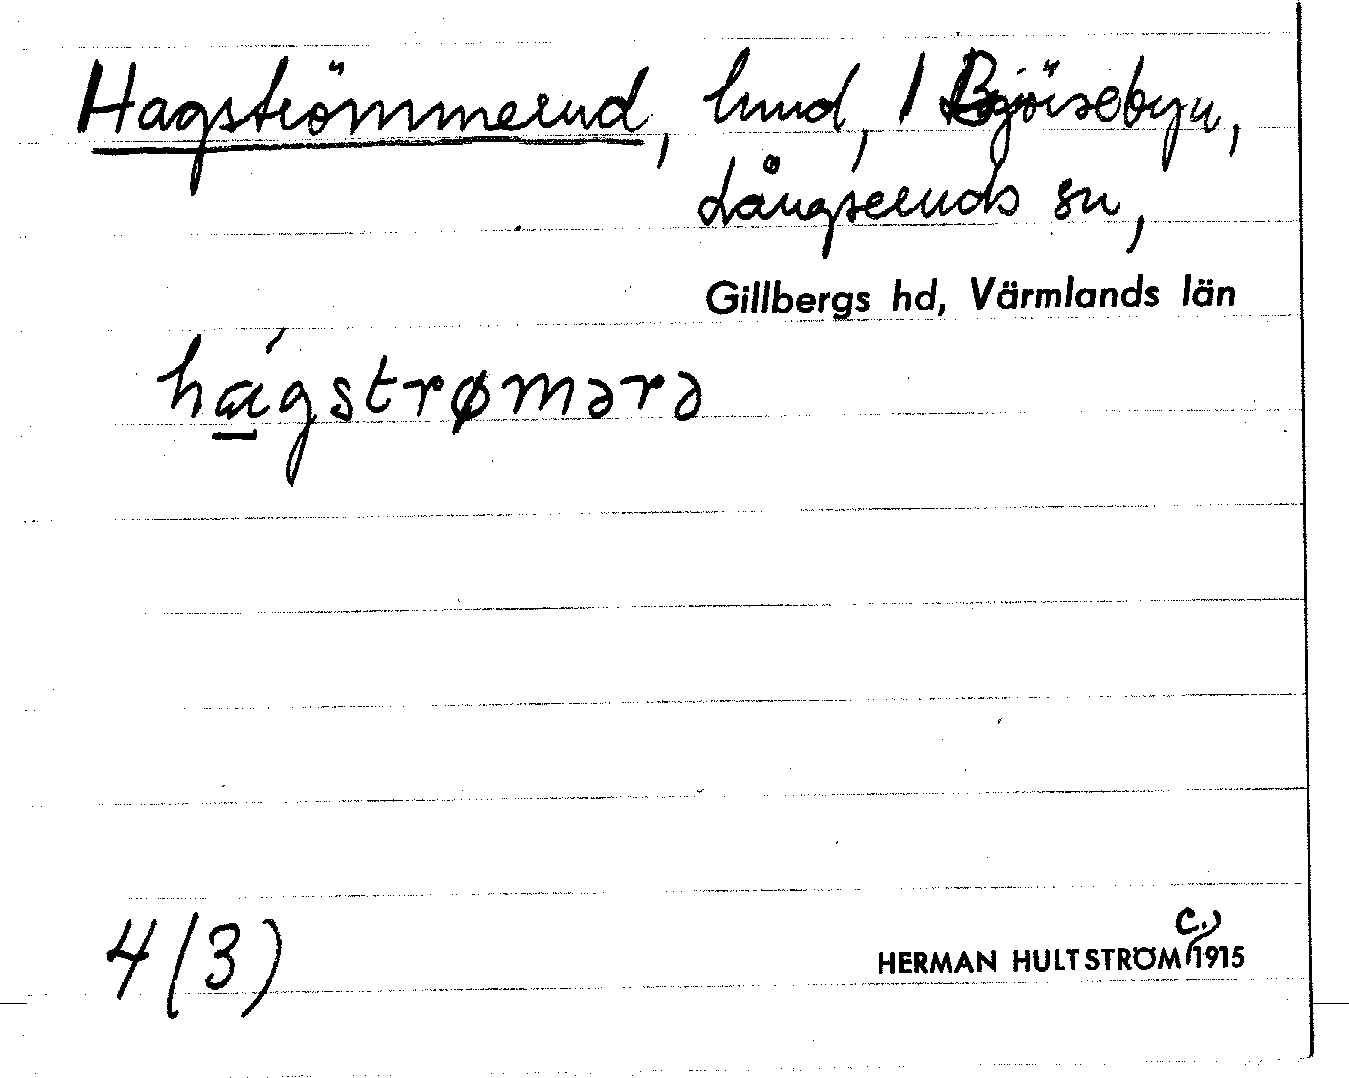 Hagströmmerud, lund, 1 Björsebyn,
Långseruds sn,
Gillbergs hd, Värmlands län
hágstrømərə
4(3)
c.)
HERMAN HULTSTRÖM 1915